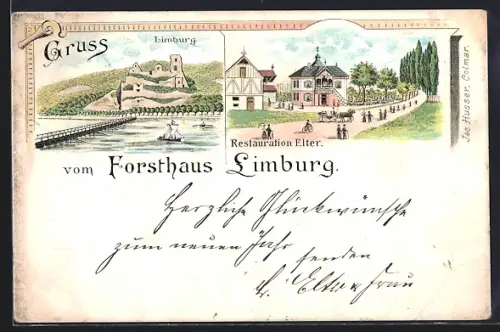 Gruss
Limburg.
Restauration Elter.
Jos. Husser, Colmar.
vom Forsthaus Limburg.
Herzliche Glückwünsche
zum neuen Jahr
senden
Elter u Frau